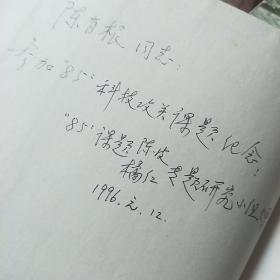 陈百根 同志:
参加"85"科技攻关课题纪念!
"85"课题陈皮
橘红 专题研究小组
1996.元.12.